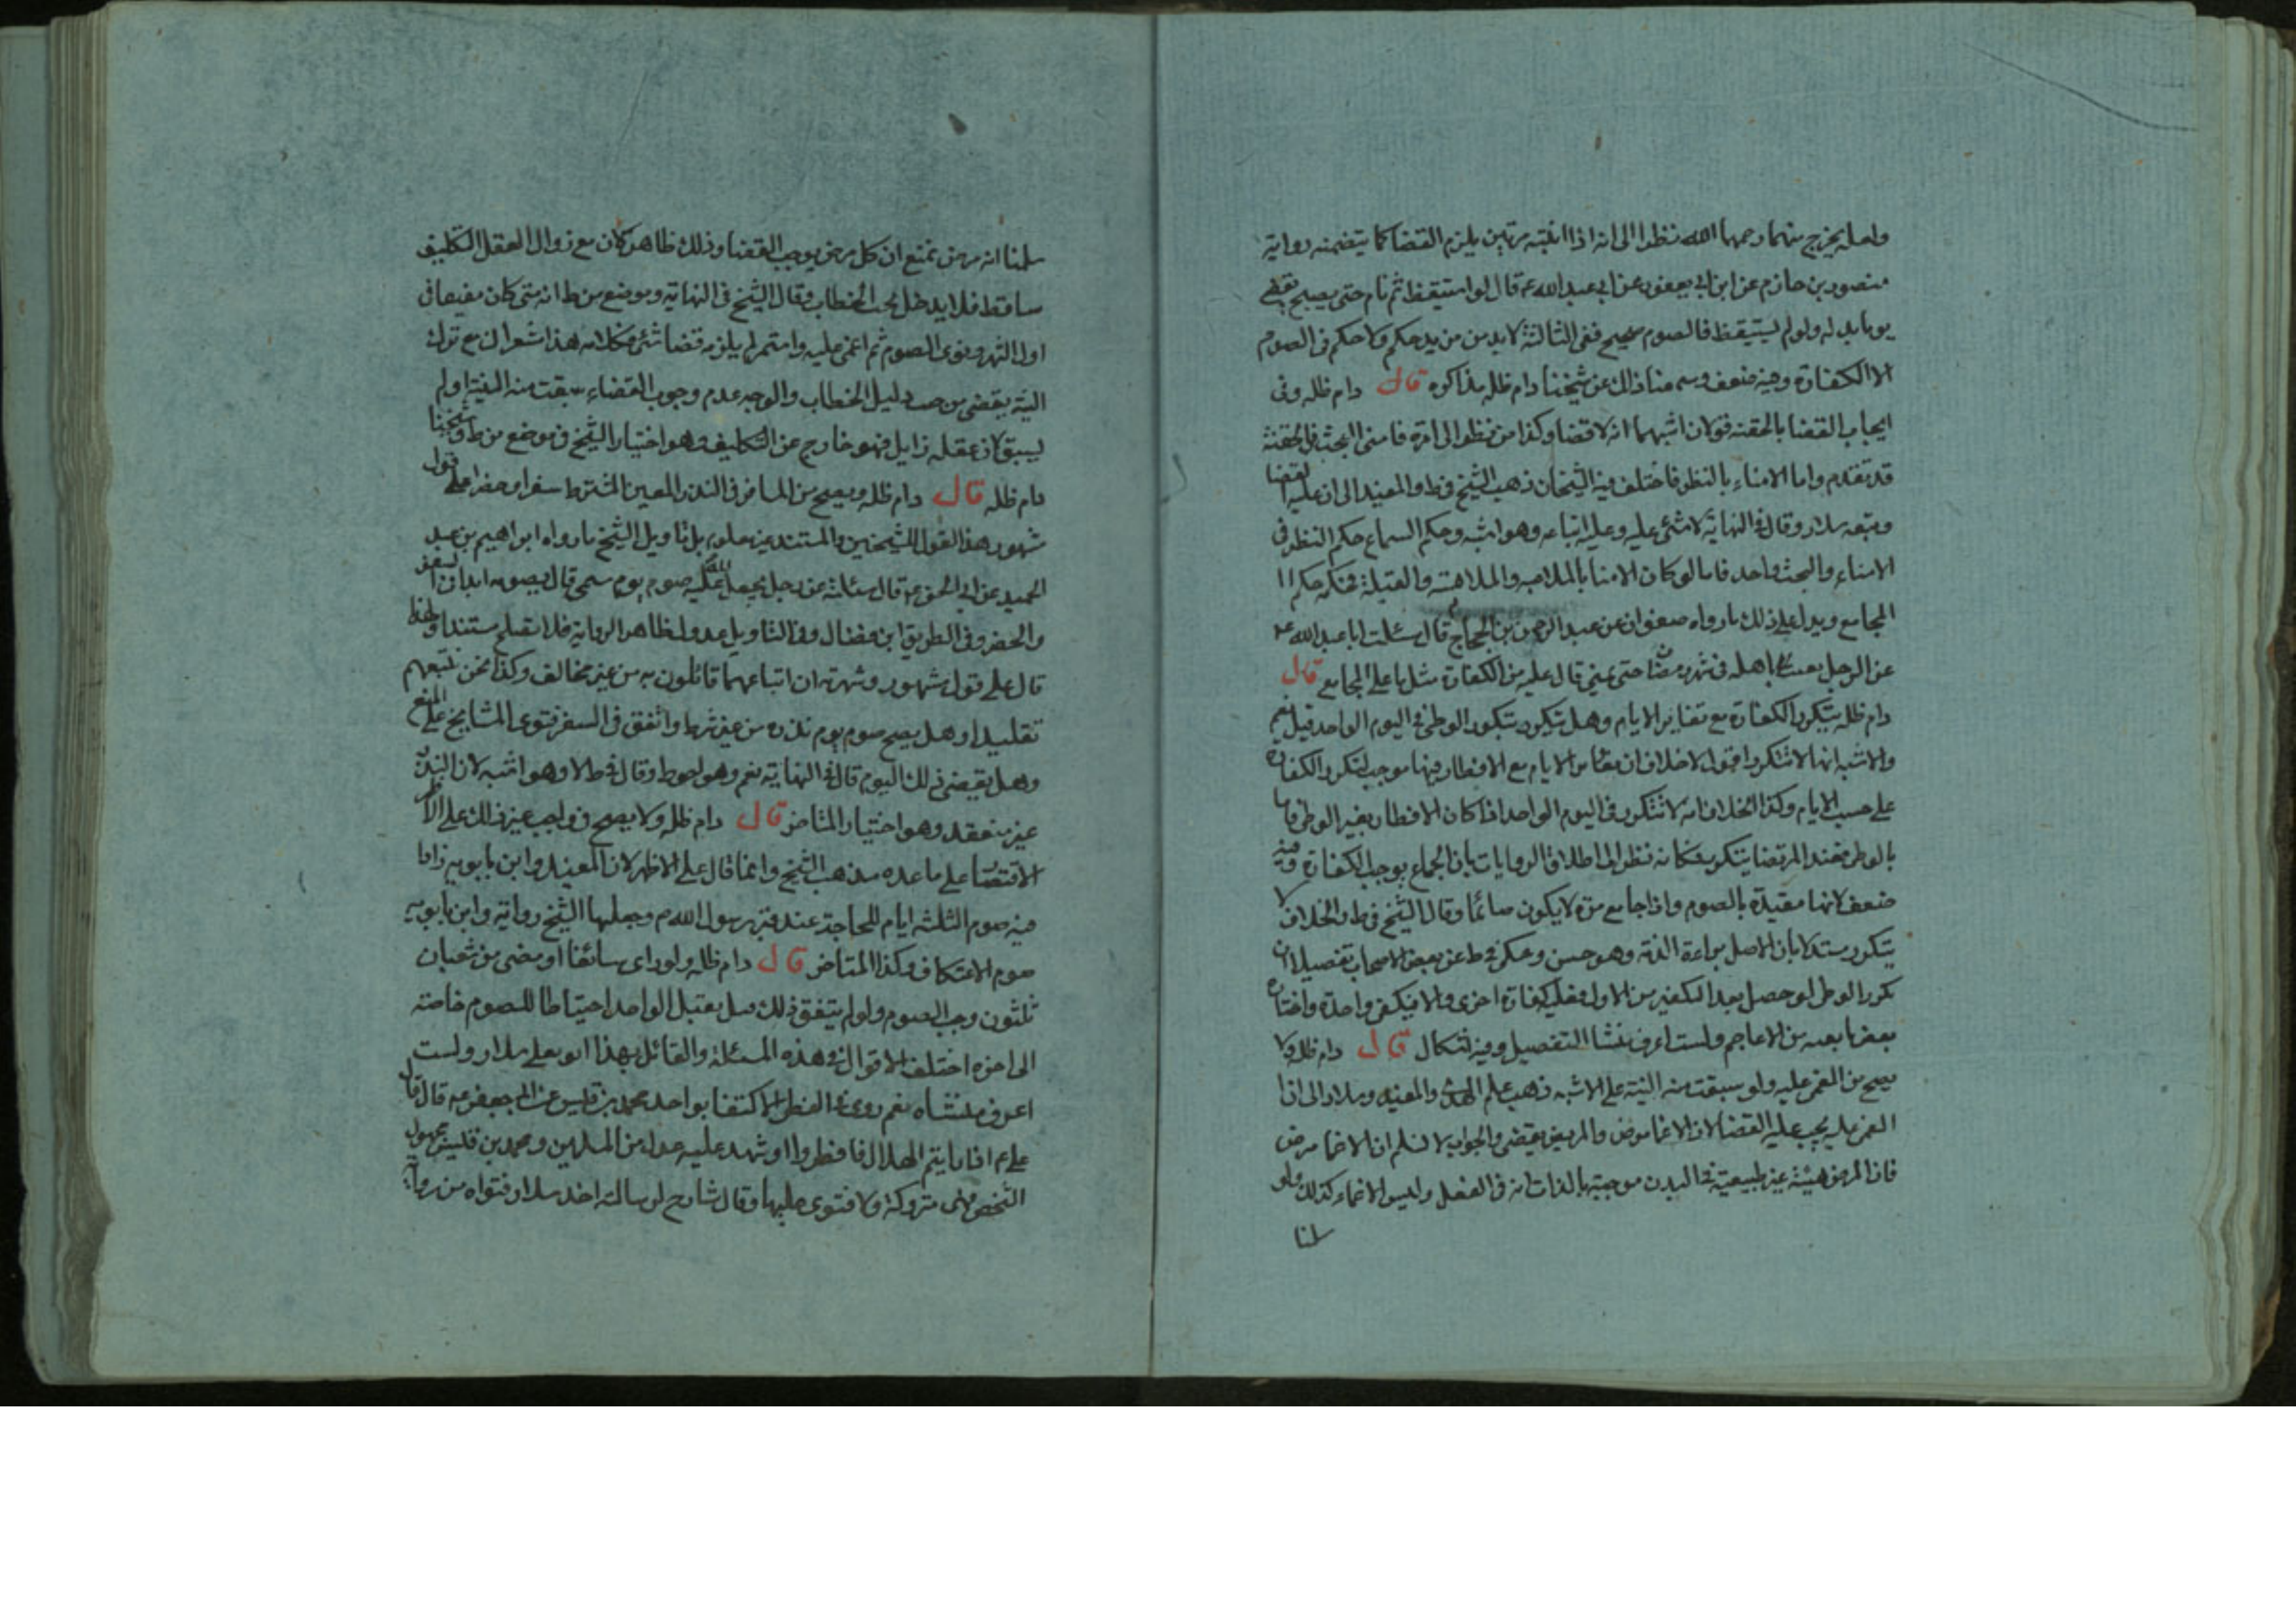 ولعله يخرج منهما رحمهما الله نظرا الى انه اذا انتبه مرتين يلزم القضا كما يتضمنه رواية
منصور بن حازم عن ابن ابي يعفور عن ابي عبد الله ع قال لو استيقظ ثم نام حتى يصبح يقضى
يوما بدله ولو لم يستيقظ فالصوم صحيح ففى الثالثة لا بد من مزيد حكم ولا حكم فى الصوم
الا الكفارة وفيه ضعف وسمعنا ذلك عن شيخنا دام ظله مذاكره قال دام ظله وفى
ايجاب القضا بالحقنه قولان اشبههما انه لا قضا وكذا من نظر الى امرة فامنى البحث فى الحقنة
قد تقدم واما الامناء بالنظر فاختلف فيه الشيخان ذهب الشيخ فى ط والمفيد الى ان عليه القضا
وتبعه سلار وقال فى النهاية لا شئ عليه وعليه اتباعه وهو اشبه وحكم السماع حكم النظر فى
الامناء والبحث واحد فاما لو كان الامنا بالملاعبه والملامسة والقبلة فحكمه حكم
المجامع ويدل على ذلك ما رواه صفوان عن عبد الرحمن بن الحجاج قال سئلت ابا عبد الله ع
عن الرجل يعبث باهله فى شهر رمضان حتى يمنى قال عليه من الكفارة مثل ما على المجامع قال
دام ظله يتكرر الكفارة مع تغاير الايام وهل يتكرر بتكرر الوطى فى اليوم الواحد قيل نعم
والاشبه انها لا تتكرر اقول لا خلاف ان تغاير الايام مع الافطار فيها موجب لتكرر الكفارة
على حسب الايام وكذا لا خلاف انه لا تتكرر فى اليوم الواحد اذا كان الافطار بغير الوطى فاما
بالوطى فعند المرتضا يتكرر فكانه نظر الى اطلاق الروايات بان الجماع يوجب الكفارة وفيه
ضعف لانها مقيدة بالصوم واذا جامع مرة لا يكون صائما وقال الشيخ فى ط والخلاف لا
يتكرر مستدلا بان الاصل براءة الذمة وهو حسن وحكى فى ط عن بعض الاصحاب تفصيلا ان
تكرر الوطى لو حصل بعد التكفير من الاول فعليه كفارة اخرى والا فيكفى واحدة واختاره
بعض تابعيه من الاعاجم ولست اعرف منشا التفصيل وفيه اشكال قال دام ظله ولا
يصح من المغمى عليه ولو سبقت منه النية على الاشبه ذهب علم الهدى والمفيد وسلار الى ان
المغمى عليه يجب عليه القضا لان الاغما مرض والمريض يقضى والجواب لا نسلم ان الاغما مرض
فان المرض هيئة غير طبيعية فى البدن موجبة بالذات افة فى الفعل وليس الاغماء كذلك ولو
سلمنا
سلمنا انه مرض نمنع ان كل مرض يوجب القضا وذلك ظاهر كان مع زوال العقل التكليف
ساقط فلا يدخل تحت الخطاب وقال الشيخ فى النهاية وموضع من ط انه متى كان مفيقا فى
اول الشهر ونوى الصوم ثم اغمى عليه واستمر لم يلزمه قضا شئ وكلامه هذا اشعر ان مع ترك
النية يقضى من حيث دليل الخطاب والوجه عدم وجوب القضاء سبقت منه النية او لم
يسبق لان عقله زايل فهو خارج عن التكليف وهو اختيار الشيخ فى موضع من ط وشيخنا
دام ظله قال دام ظله ويصح من المسافر فى النذر المعين المشترط سفرا وحضرا على قول
مشهور هذا القول للشيخين والمستند غير معلوم بل تاويل الشيخ ما رواه ابراهيم بن عبد
الحميد عن ابى الحسن ع قال سئلته عن رجل يجعل لله عليه صوم يوم مسمى قال يصومه ابدا فى السفر
والحضر وفى الطريق ابن فضال وفى التاويل عدول لظاهر الرواية فلا تصلح مستندا ولهذا
قال على قول مشهور وشهرته ان اتباعهما قائلون به من غير مخالف وكذا نحن نتبعهم
تقليدا وهل يصح صوم يوم نذره من غير شرط واتفق فى السفر فتوى المشايخ على المنع
وهل يقضى ذلك اليوم قال فى النهاية نعم وهو احوط وقال فى ط لا وهو اشبه لان النذر
غير منعقد وهو اختيار المتاخر قال دام ظله ولا يصح فى واجب غير ذلك على الاظهر
الاقتصار على ما عده مذهب الشيخ وانما قال على الاظهر لان المفيد وابن بابويه زادا
فيه صوم الثلثه ايام للحاجة عند قبر رسول الله ص وجعلها الشيخ رواية وابن بابويه
صوم الاعتكاف وكذا المتاخر قال دام ظله ولو راى سائغا او مضى من شعبان
ثلثون وجب الصوم ولو لم يتفق ذلك قيل يقبل الواحد احتياطا للصوم خاصة
الى اخره اختلف الاقوال فى هذه المسئلة والقائل بهذا ابو يعلى سلار ولست
اعرف منشاه نعم روى فى الفطر الاكتفا بواحد محمد بن قيس عن ابى جعفر ع قال قال
على ع اذا رايتم الهلال فافطروا او شهد عليه عدل من المسلمين ومحمد بن قيس مجهول
الشخص فهى متروكة ولا فتوى عليها وقال شارح لرسالته اخذ سلار فتواه من رواية